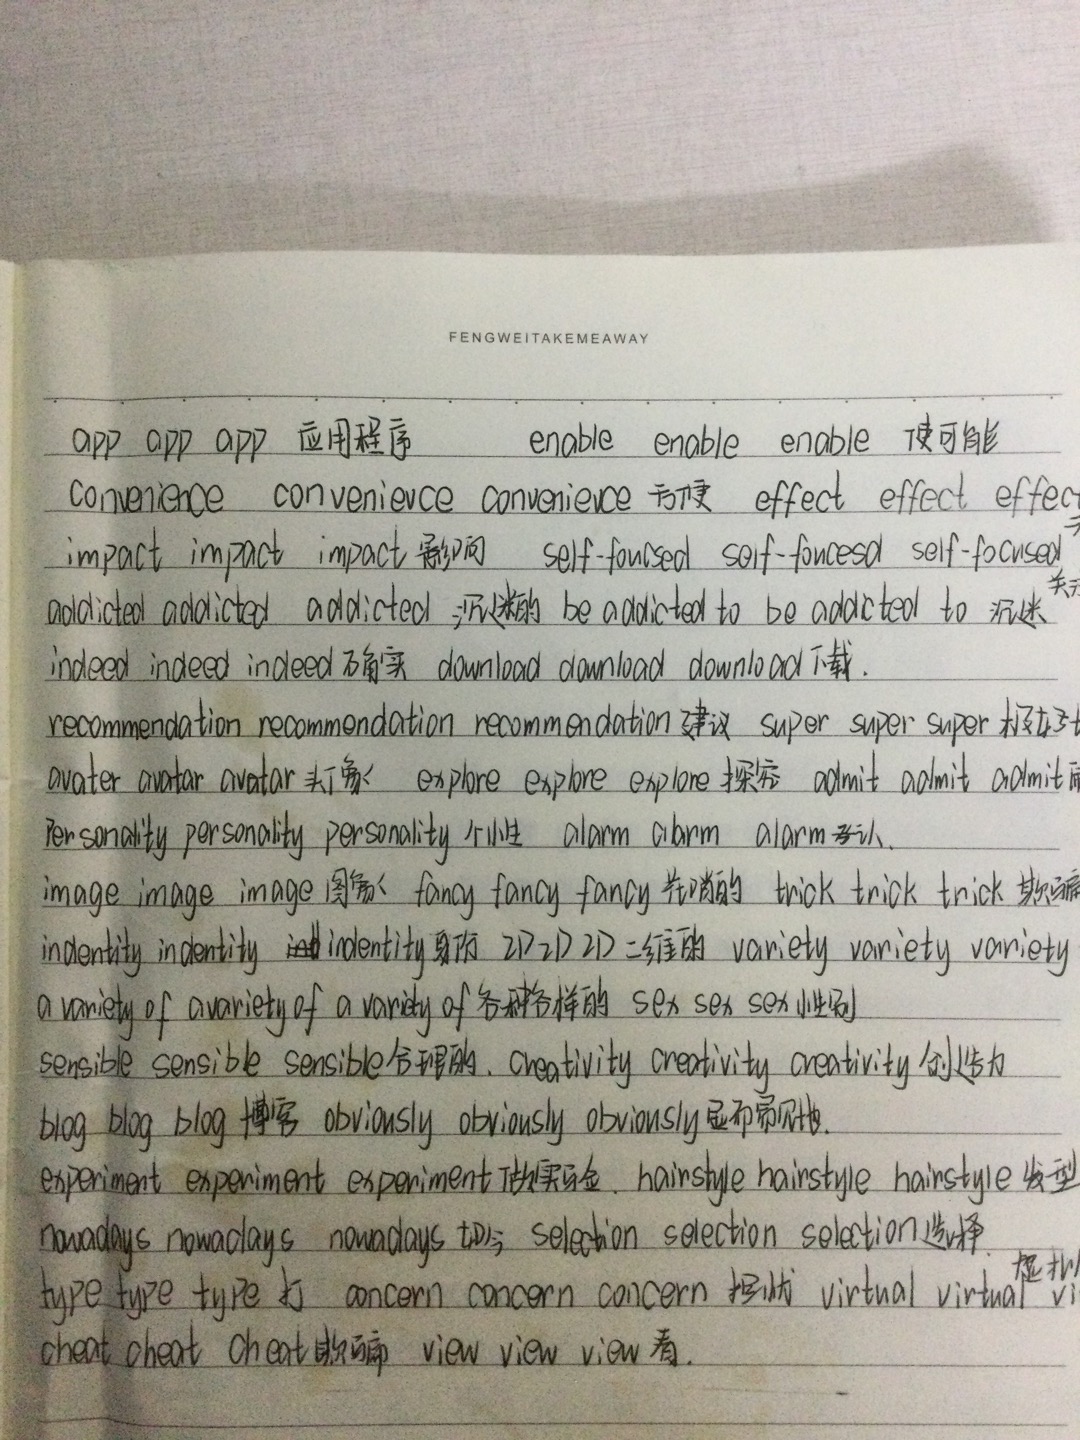 FENGWEITAKEMEAWAY
app app app 应用程序 enable enable enable 使可能
convenience convenievce convenievce 方便 effect effect effec
impact impact impact 影响 self-foucsed self-foucesd self-focused
addicted addicted addicted 沉迷的 be addicted to be addicted to 沉迷
indeed indeed indeed 确实 download download download 下载.
recommendation recommendation recommendation 建议 super super super
avater avatar avatar 头像 explore explore explore 探究 admit admit admit
Personality personality personality 个性 alarm alarm alarm 承认.
image image image 图像 fancy fancy fancy 花哨的 trick trick trick 欺骗
indentity indentity indentity 身份 2D 2D 2D 二维的 variety variety variety
a variety of avariety of a variety of 各种各样的 sex sex sex 性别
sensible sensible sensible 合理的. creativity creativity creativity 创造力
blog blog blog 博客 obviously obviously obviously 显而易见地.
experiment experiment experiment 做实验. hairstyle hairstyle hairstyle 发型
nowadays nowadays nowadays selection selection selection 选择.
type type type 打 concern concern concern 担忧 virtual virtual vi
cheat cheat cheat 欺骗 view view view 看.